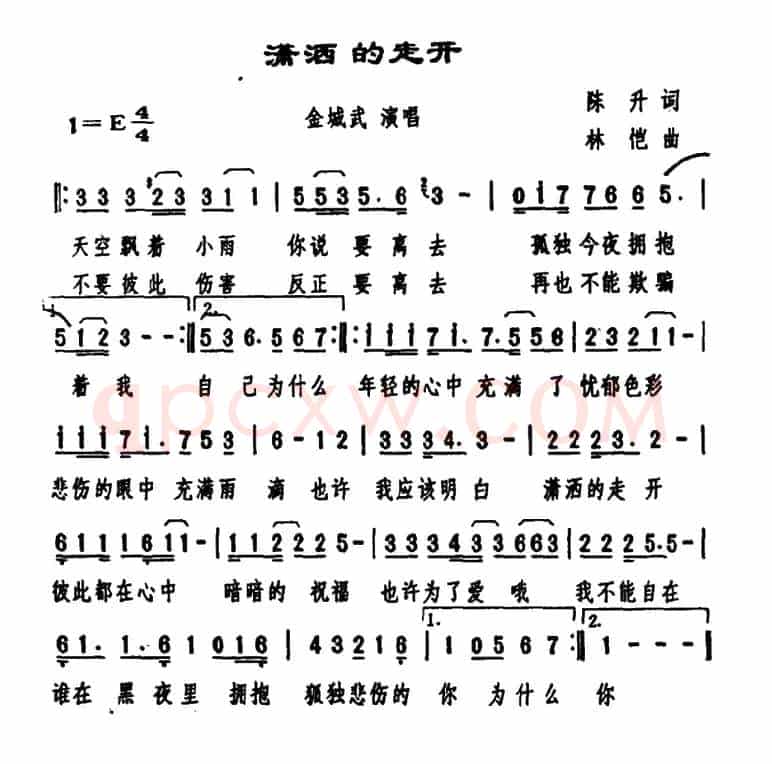 潇洒的走开
1=E 4/4
金城武 演唱
陈升词
林恺曲
3 3 3 2 3 3 1 1 | 5 5 3 5. 6 3 - | 0 1 7 7 6 6 5. |
天空飘着 小雨 你说 要离去 孤独今夜拥抱
不要彼此 伤害 反正 要离去 再也不能欺骗
1. 2.
5 1 2 3 - - :|| 5 3 6. 5 6 7 :||: 1 1 1 7 1. 7. 5 5 6 | 2 3 2 1 1 - |
着我 自己为什么 年轻的心中 充满了忧郁色彩
qpcxw.COM
1 1 1 7 1. 7 5 3 | 6 - 1 2 | 3 3 3 4. 3 - | 2 2 2 3. 2 - |
悲伤的眼中 充满雨 滴也许 我应该明白 潇洒的走开
6 1 1 1 6 1 1 - | 1 1 2 2 2 5 - | 3 3 3 4 3 3 6 6 3 | 2 2 2 5. 5 - |
彼此都在心中 暗暗的 祝福 也许为了爱 哦 我不能自在
1. 2.
6 1. 1. 6 1 0 1 6 | 4 3 2 1 6 | 1 0 5 6 7 :|| 1 - - - ||
谁在 黑夜里 拥抱 孤独悲伤的 你 为什么 你